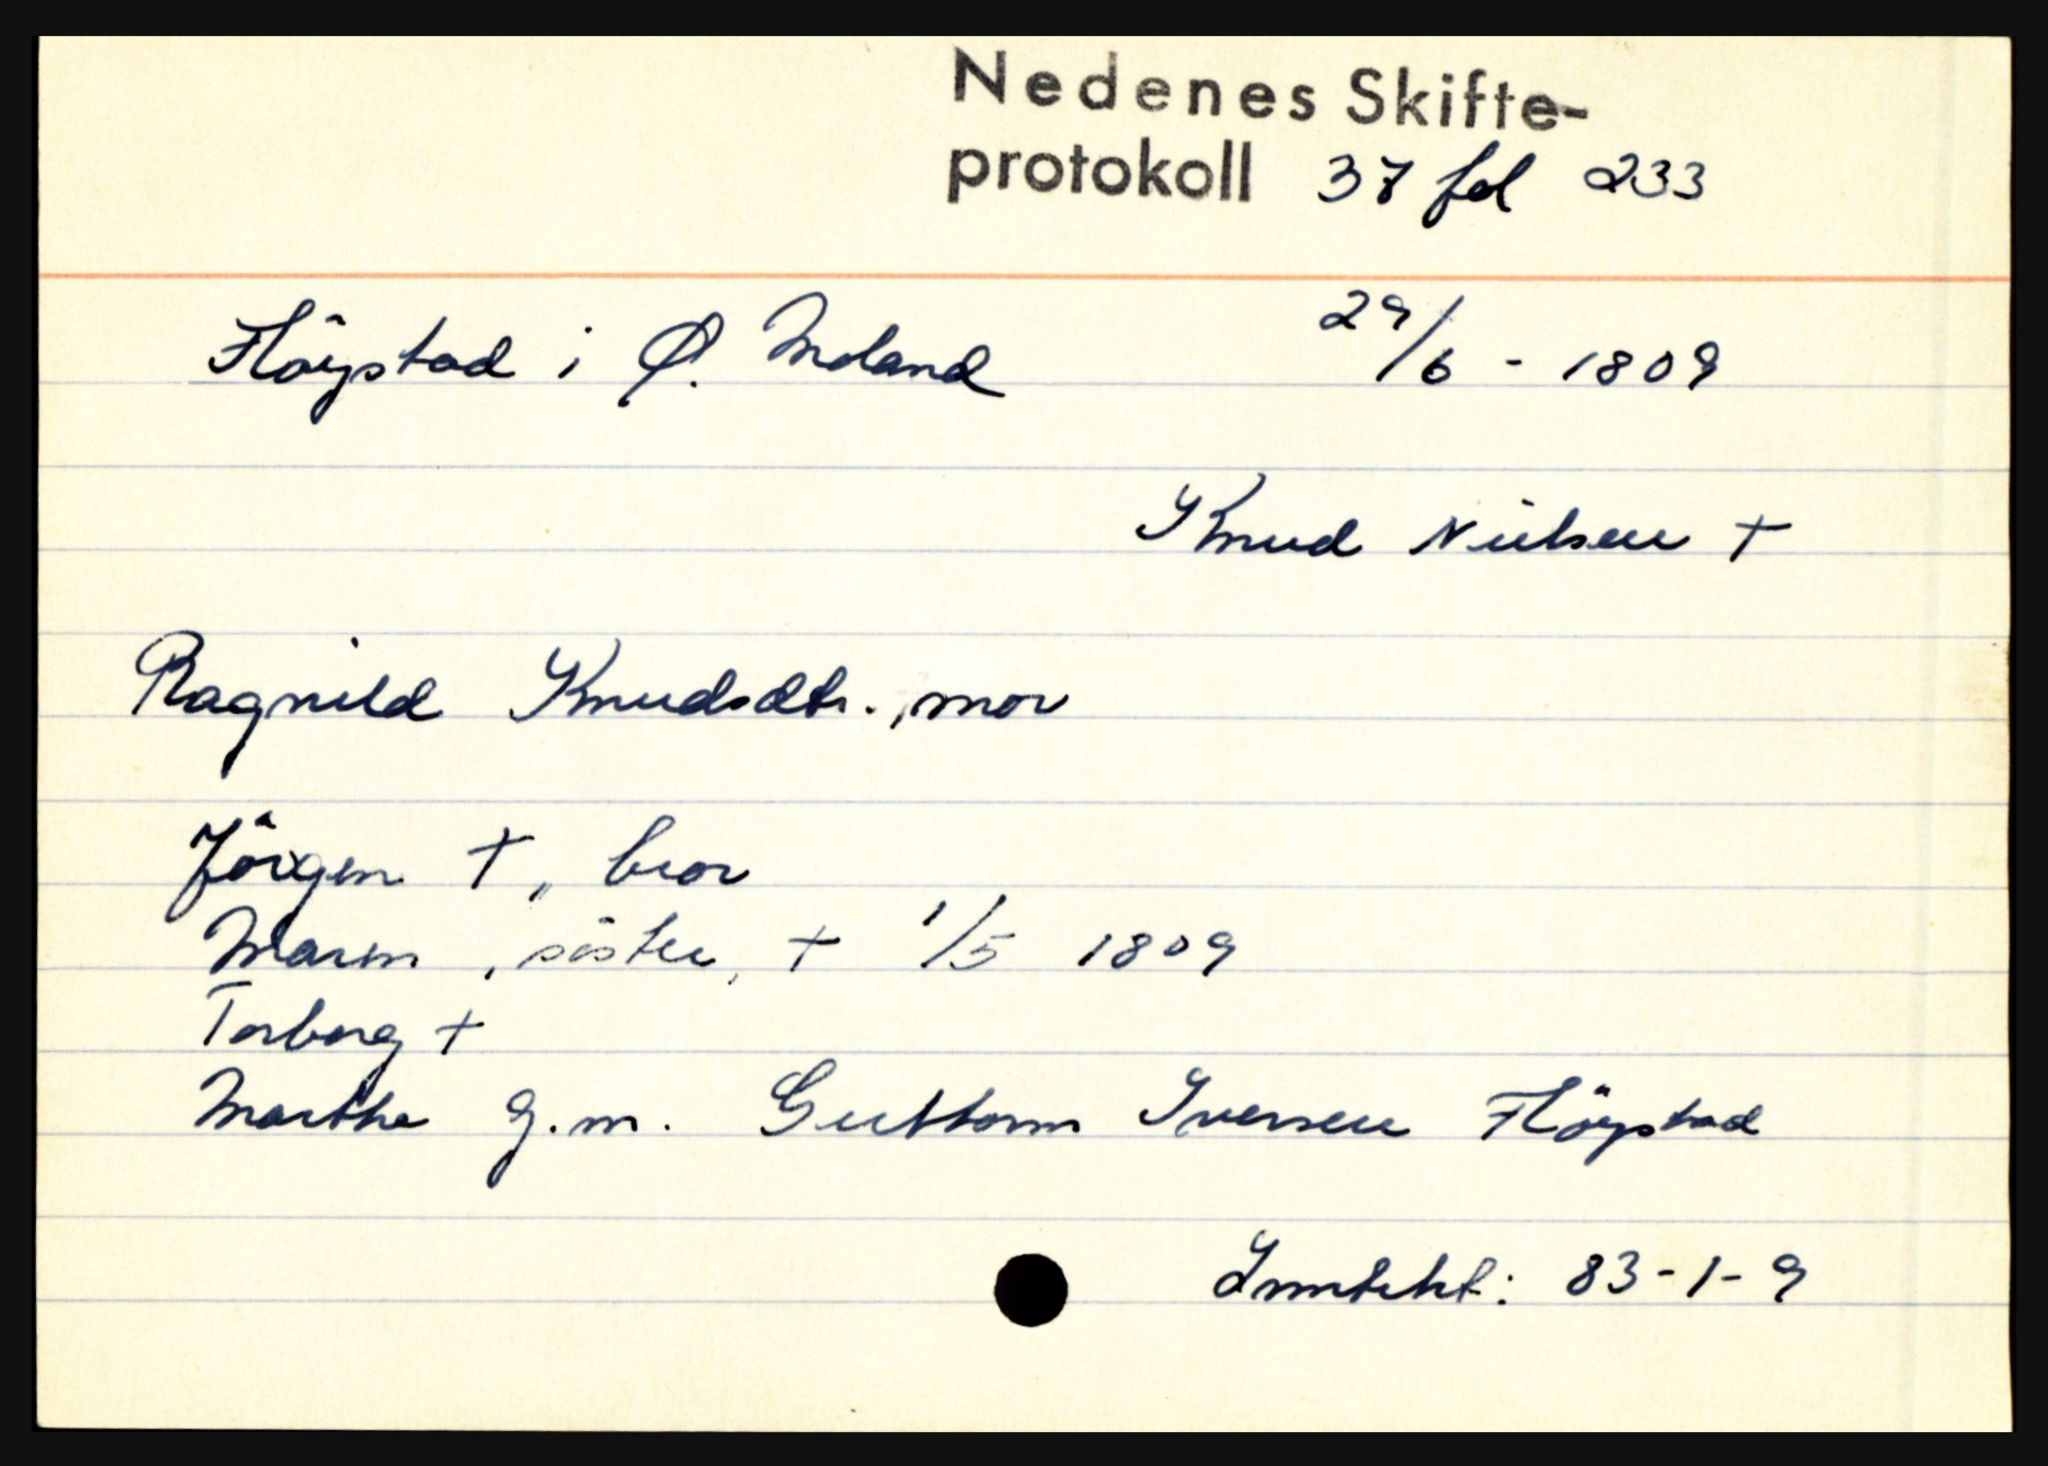 Nedenes Skifte-
protokoll 37 fol 233
Flöystad i Ø. Moland 29/6 - 1809
Knud Nielsen +
Ragnild Knudsdtr., mor
Jörgen +, bror
Maren, söster, + 1/5 1809
Torborg +
Marthe g.m. Guttorm Iversen Flöystad
Inntekt: 83-1-9